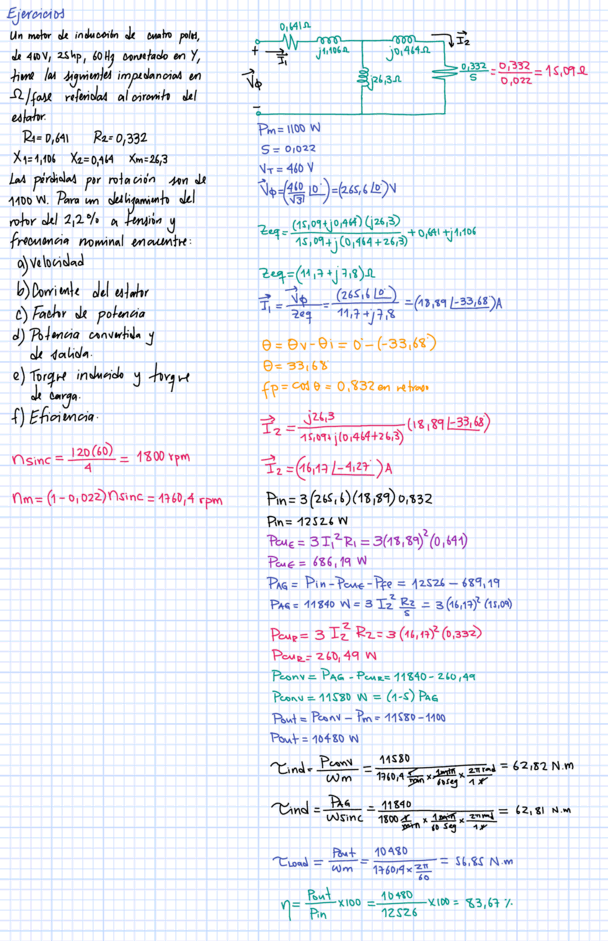 Ejercicios
Un motor de inducción de cuatro polos,
de 460V, 25hp, 60Hg conectado en Y,
tiene las siguientes impedancias en
Ω/fase referidas al circuito del
estator.
R1=0,641 R2=0,332
X1=1,106 X2=0,464 Xm=26,3
Las pérdidas por rotación son de
1100 W. Para un deslizamiento del
rotor del 2,2% a tensión y
frecuencia nominal encuentre:
a) Velocidad
b) Corriente del estator
c) Factor de potencia
d) Potencia convertida y
de salida.
e) Torque inducido y torque
de carga.
f) Eficiencia.
nsinc = 120(60)/4 = 1800 rpm
nm = (1-0,022)nsinc = 1760,4 rpm
0,641Ω
j1,106Ω
j0,464Ω
I2
+
I1
Vφ
j26,3Ω
0,332/S = 0,332/0,022 = 15,09Ω
-
Pm = 1100 W
S = 0,022
VT = 460 V
Vφ = (460/√3 ∠0°) = (265,6∠0°)V
Zeq = (15,09+j0,464)(j26,3)/15,09+j(0,464+26,3) + 0,641+j1,106
Zeq = (11,7+j7,8)Ω
I1 = Vφ/Zeq = (265,6∠0°)/11,7+j7,8 = (18,89∠-33,68)A
θ = θv-θi = 0°-(-33,68)
θ = 33,68
fp = cosθ = 0,832 en retraso
I2 = j26,3/15,09+j(0,464+26,3) (18,89∠-33,68)
I2 = (16,17∠-4,27°)A
Pin = 3(265,6)(18,89)0,832
Pin = 12526 W
PcuE = 3 I1² R1 = 3(18,89)²(0,641)
PcuE = 686,19 W
PAG = Pin-PcuE-Pfe = 12526-689,19
PAG = 11840 W = 3 I2² R2/S = 3(16,17)²(15,09)
PcuR = 3 I2² R2 = 3(16,17)²(0,332)
PcuR = 260,49 W
Pconv = PAG - PcuR = 11840-260,49
Pconv = 11580 W = (1-S) PAG
Pout = Pconv - Pm = 11580-1100
Pout = 10480 W
τind = Pconv/ωm = 11580/1760,4 r/min × 1min/60seg × 2π rad/1r = 62,82 N.m
τind = PAG/ωsinc = 11840/1800 r/min × 1min/60 seg × 2π rad/1r = 62,81 N.m
τload = Pout/ωm = 10480/1760,4 × 2π/60 = 56,85 N.m
η = Pout/Pin ×100 = 10480/12526 ×100 = 83,67 %